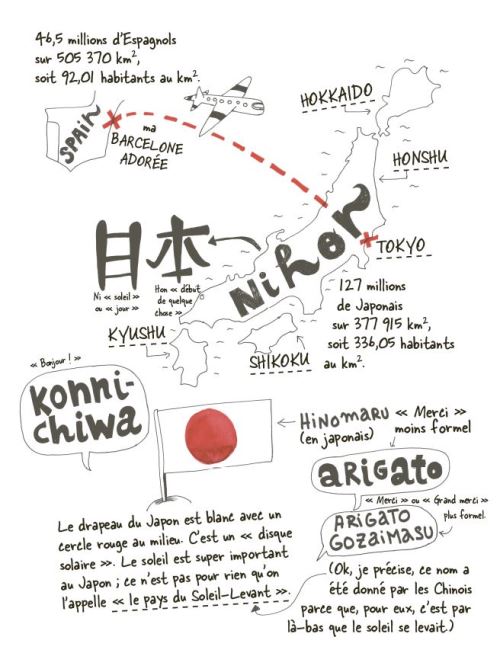 46,5 millions d'Espagnols
sur 505 370 km²,
soit 92,01 habitants au km².
SPAIN
ma
BARCELONE
ADORÉE
HOKKAIDO
HONSHU
TOKYO
Nihon
日本
Ni « soleil »
ou « jour »
Hon « début
de quelque
chose »
127 millions
de Japonais
sur 377 915 km²,
soit 336,05 habitants
au km².
KYUSHU
SHIKOKU
« Bonjour ! »
Konni-
chiwa
HiNOMARU
(en japonais)
« Merci »
moins formel
ARiGATO
« Merci » ou « Grand merci »
plus formel.
ARiGATO
GOZAiMASU
Le drapeau du Japon est blanc avec un
cercle rouge au milieu. C'est un « disque
solaire ». Le soleil est super important
au Japon ; ce n'est pas pour rien qu'on
l'appelle « le pays du Soleil-Levant ».
(Ok, je précise, ce nom a
été donné par les Chinois
parce que, pour eux, c'est par
là-bas que le soleil se levait.)